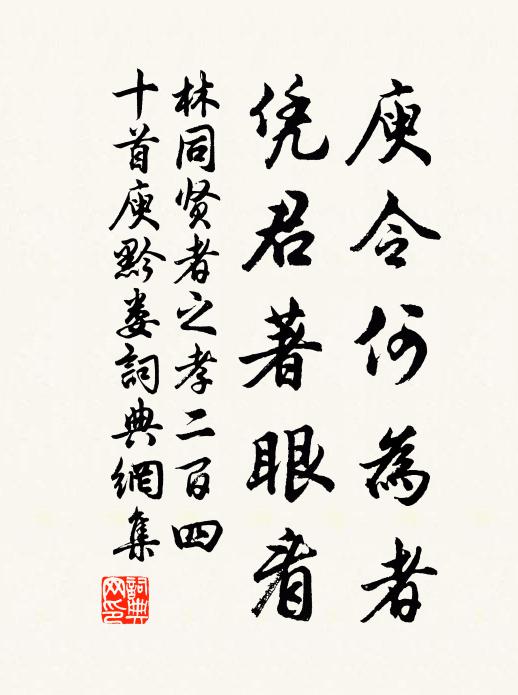 庾令何為者
凭君著眼看
林同贤者之孝二百四
十首庾黔娄詞典網集
詞典網印